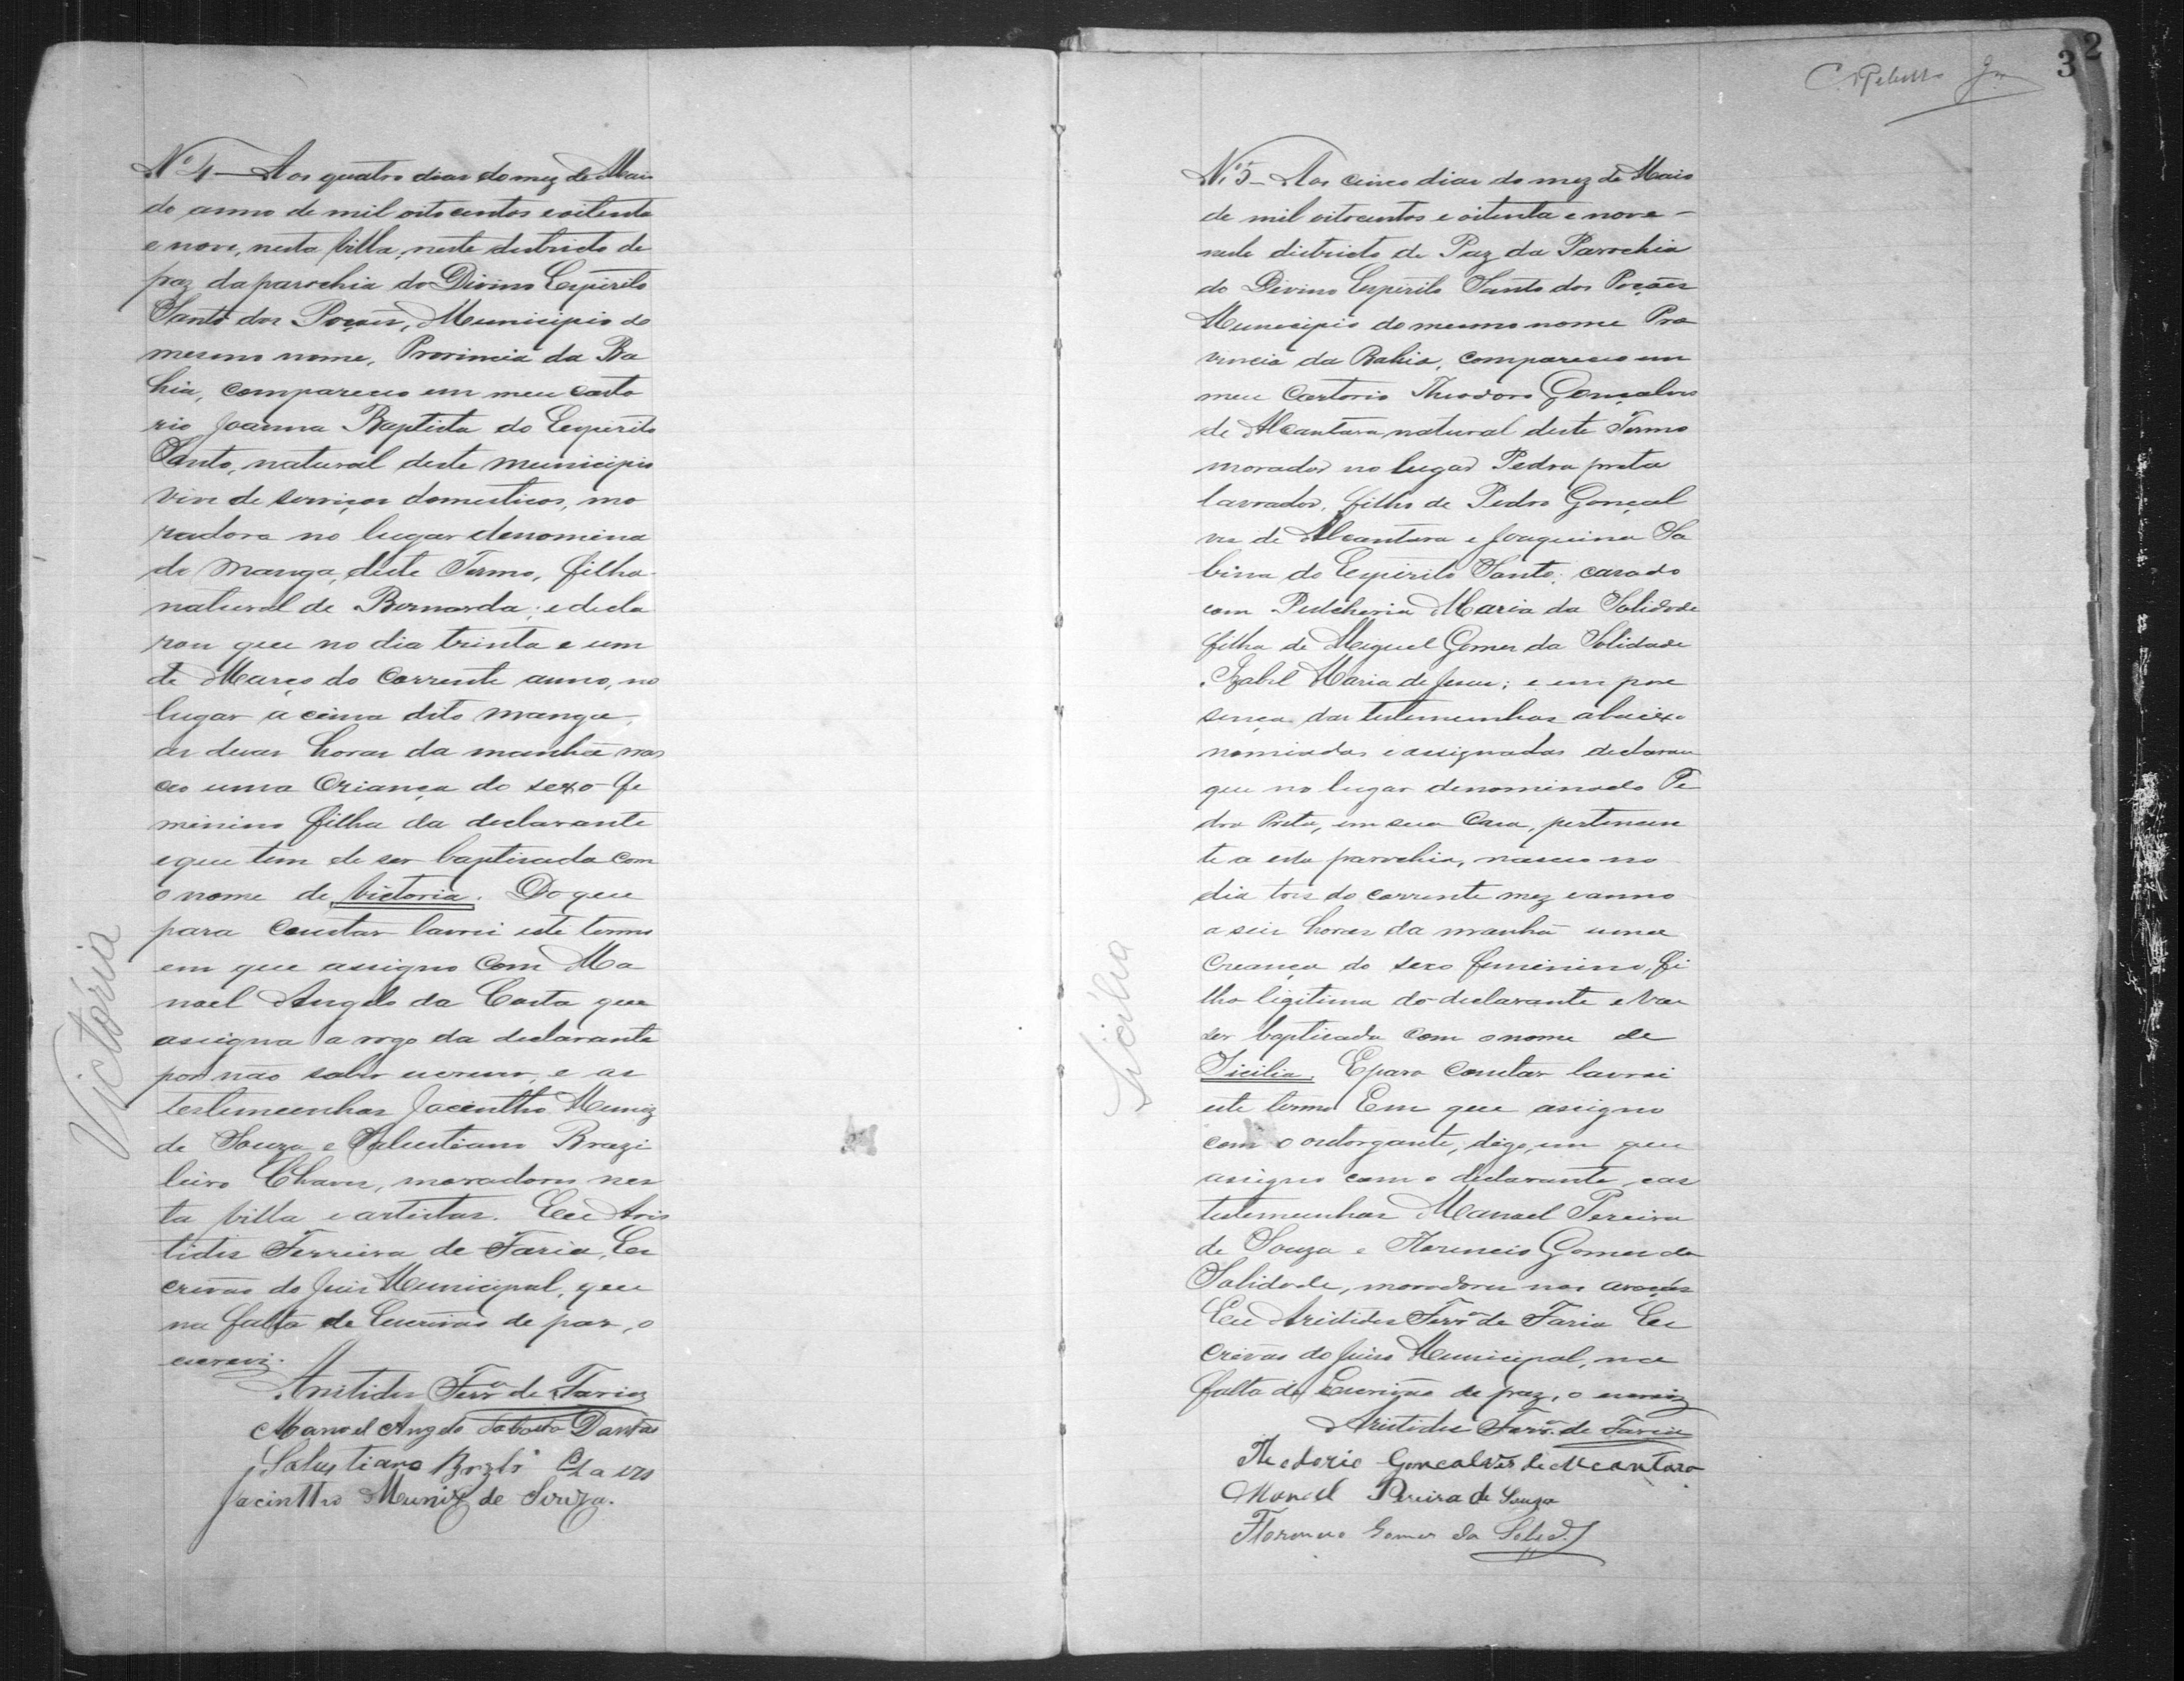 Nº 4 — Aos quatro dias do mez de Maio
do anno de mil oito centos e oitenta
e nove, nesta villa, neste districto de
paz da parochia do Divino Espirito
Santo dos Poções, Municipio do
mesmo nome, Provincia da Ba
hia, compareceo em meu carto
rio Joanna Baptista do Espirito
Santo, natural deste municipio
vive de serviços domesticos, mo
radora no lugar denomina
do Manga, deste Termo, filha
natural de Bernarda; e decla
rou que no dia trinta e um
de Março do corrente anno, no
lugar acima dito manga,
as duas horas da manhã nas
ceo uma criança do sexo fe
minino filha da declarante
e que tem de ser baptisada com
o nome de Victoria. Do que
para constar lavrei este termo
em que assigno com Ma
noel Angelo da Costa que
assigna a rogo da declarante
por não saber escrever, e as
testemunhas Jacintho Muniz
de Souza e Salustiano Brazi
leiro Chaves, moradores nes
ta villa e artistas. Eu Aris
tides Ferreira de Faria, Es
crivão do Juis Municipal, que
na falta de Escrivão de paz, o
escrevi.
Aristides Ferrª de Faria
Manoel Angelo da Costa Dantas
Salustiano Brzlrº Chaves
Jacinttho Muniz de Souza.
Victória
C. Rebello Jor
3 2
Nº 5 — Aos cinco dias do mez de Maio
de mil oitocentos e oitenta e nove —
neste districto de Paz da Parochia
do Divino Espirito Santo dos Poções
Municipio do mesmo nome Pro
vincia da Bahia, compareceo em
meu Cartorio Theodoro Gonçalves
de Alcantara natural deste Termo
morador no lugar Pedra preta
lavrador, filho de Pedro Gonçal
ves de Alcantara e Joaquina Sa
bina do Espirito Santo; casado
com Pulcheria Maria da Solidade
filha de Miguel Gomes da Solidade
Izabel Maria de Jesus; e em pre
sença das testemunhas abaixo
nomiadas e assignadas declarou
que no lugar denominado Pe
dra Preta, em sua Casa, pertencen
te a esta parochia, nasceo no
dia tres do corrente mez e anno
a seis horas da manhã uma
Creança do sexo femenino, fi
lha ligitima do declarante e vae
ser baptisada com o nome de
Sicilia. E para constar lavrei
este termo Em que assigno
com o outorgante, digo, em que
assigno com o declarante, e as
testemunhas Manoel Pereira
de Souza e Florencio Gomes da
Solidade, moradores nos
Eu Aristides Ferrª de Faria Es
crivão do Juiso Municipal, na
falta de Escrivão de paz, o escrevi
Aristides Ferrª de Faria
Theodorio Goncalves de Alcantara
Manoel Pereira de Souza
Florencio Gomes da Solide
Sicília